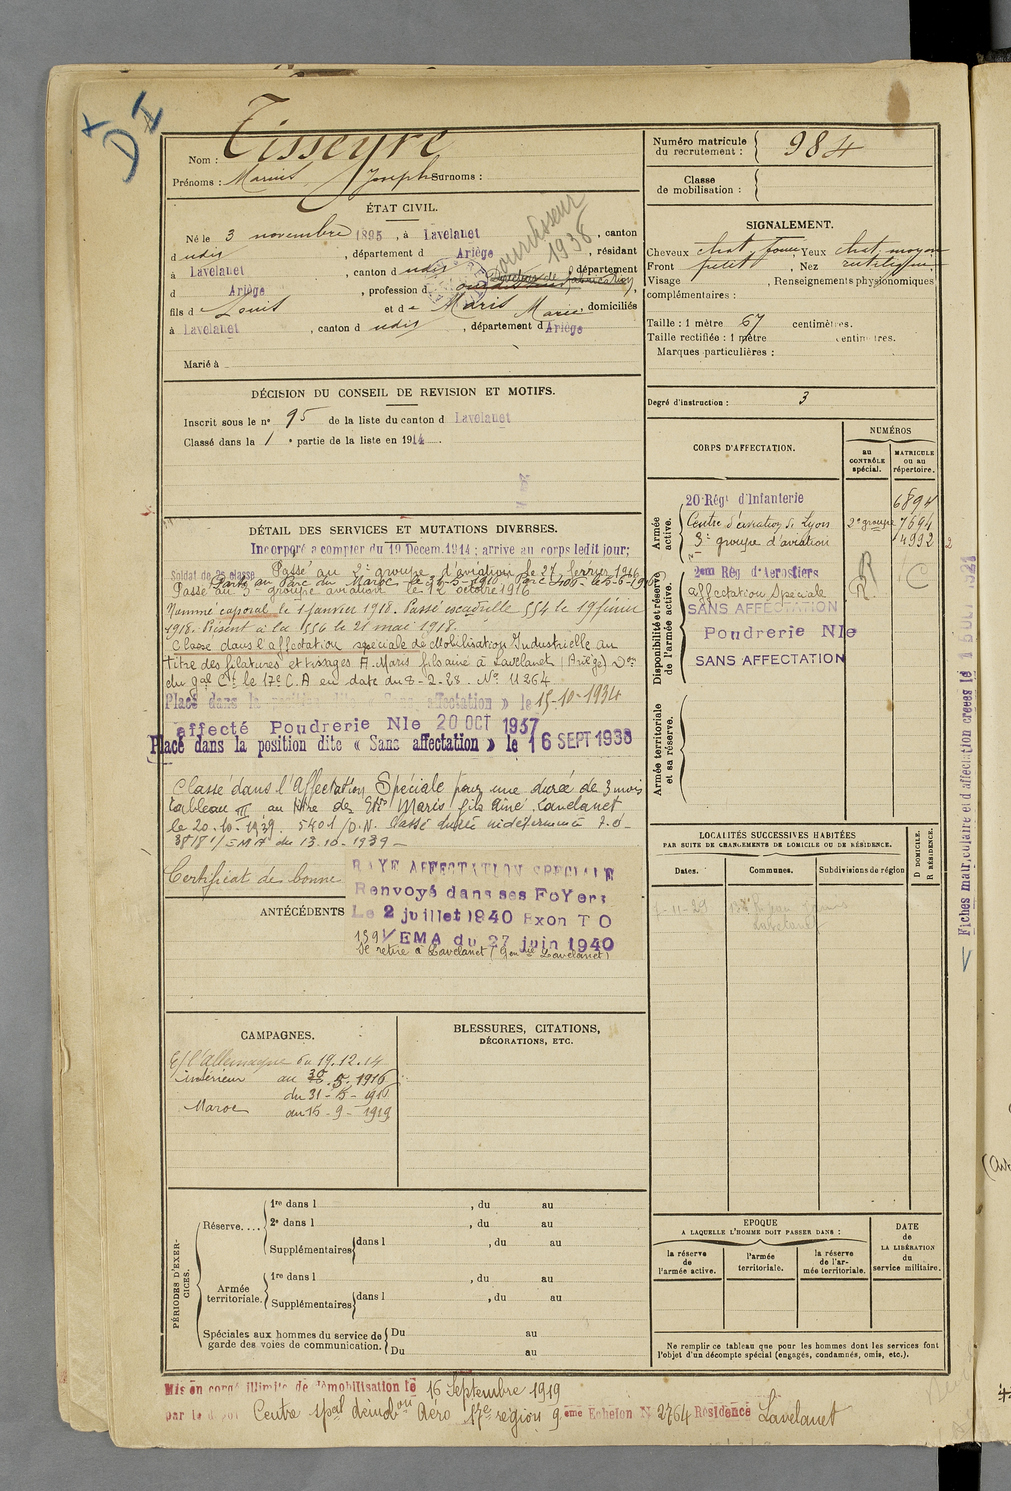 D I
Nom : Tisseyre
Prénoms : Marius Joseph Surnoms :
Numéro matricule du recrutement : 984
Classe de mobilisation :
ÉTAT CIVIL.
Né le 3 novembre 1895, à Lavelanet, canton
dudis, département d Ariège, résidant
à Lavelanet, canton dudis, département
d Ariège, profession d
fils d Louis et de Maris Marie domiciliés
à Lavelanet, canton dudis, département d Ariège
1936
Marié à
SIGNALEMENT.
Cheveux chat. foncé Yeux chat. moyen
Front petit, Nez rectiligne
Visage , Renseignements physionomiques
complémentaires :
Taille : 1 mètre 67 centimètres.
Taille rectifiée : 1 mètre centimètres.
Marques particulières :
Degré d'instruction : 3
DÉCISION DU CONSEIL DE REVISION ET MOTIFS.
Inscrit sous le n° 95 de la liste du canton d Lavelanet
Classé dans la 1 e partie de la liste en 1914
DÉTAIL DES SERVICES ET MUTATIONS DIVERSES.
Incorporé a compter du 19 Décem. 1914 ; arrive au corps ledit jour ;
Soldat de 2e classe Passé au 2e groupe d'aviation le 27 février 1916
Passé au 3e groupe aviation le 12 octobre 1916
Nommé caporal le 1 janvier 1918. Passé escadrille 554 le 19 février
1918. Présent à la 556 le 21 mai 1918.
Classé dans l'affectation spéciale de Mobilisation Industrielle au
titre des filatures et tissages A. Maris fils aîné à Lavelanet (Ariège) Don
du gal Ct le 17e C.A en date du 8-2-28. No 11264
Placé dans la affectation » le 15-10-1934
affecté Poudrerie Nle 20 OCT 1937
Placé dans la position dite « Sans affectation » le 16 SEPT 1938
Classé dans l'Affectation Spéciale pour une durée de 3 mois
tableau III au titre de Ets Maris fils Aîné Lavelanet
le 20-10-1939. 5401/O.N. Classé durée indéterminée
/EMA du 13.10-1939
Certificat de bonne
RAYE AFFECTATION SPECIALE
Renvoyé dans ses FoYers
Le 2 juillet 1940 Exon T O
1391/EMA du 27 juin 1940
Se retire à Lavelanet (Gendie Lavelanet)
ANTÉCÉDENTS
CORPS D'AFFECTATION.
NUMÉROS
au CONTRÔLE spécial.
MATRICULE ou au répertoire.
Armée active.
20e Régt d'Infanterie 6894
Centre d'aviation de Lyon 2e groupe 7694
3e groupe d'aviation 4992
Disponibilité et réserve de l'armée active.
2eme Rég d'Aerostiers
affectation Spéciale
SANS AFFECTATION
Poudrerie Nle
SANS AFFECTATION
Armée territoriale et sa réserve.
LOCALITÉS SUCCESSIVES HABITÉES
PAR SUITE DE CHANGEMENTS DE DOMICILE OU DE RÉSIDENCE.
Dates.
Communes.
Subdivisions de région
D DOMICILE.
R RÉSIDENCE.
Lavelanet
CAMPAGNES.
C/ l'Allemagne du 19.12.14
intérieur au 30.5.1916
du 31-5-1916
Maroc au 16-9-1919
BLESSURES, CITATIONS,
DÉCORATIONS, ETC.
PÉRIODES D'EXERCICES.
Réserve....
1re dans l , du au
2e dans l , du au
Supplémentaires dans l , du au
Armée territoriale.
1re dans l , du au
Supplémentaires dans l , du au
Spéciales aux hommes du service de garde des voies de communication.
Du au
Du au
EPOQUE
A LAQUELLE L'HOMME DOIT PASSER DANS :
la réserve de l'armée active.
l'armée territoriale.
la réserve de l'armée territoriale.
DATE de LA LIBÉRATION du service militaire.
Ne remplir ce tableau que pour les hommes dont les services font
l'objet d'un décompte spécial (engagés, condamnés, omis, etc.).
Mis en congé illimité de démobilisation le 16 Septembre 1919
par le dépôt Centre spal démobon Aéro 17e région 9eme Echelon N 2764 Résidence Lavelanet
Fiches matriculaire et d affectation creees le